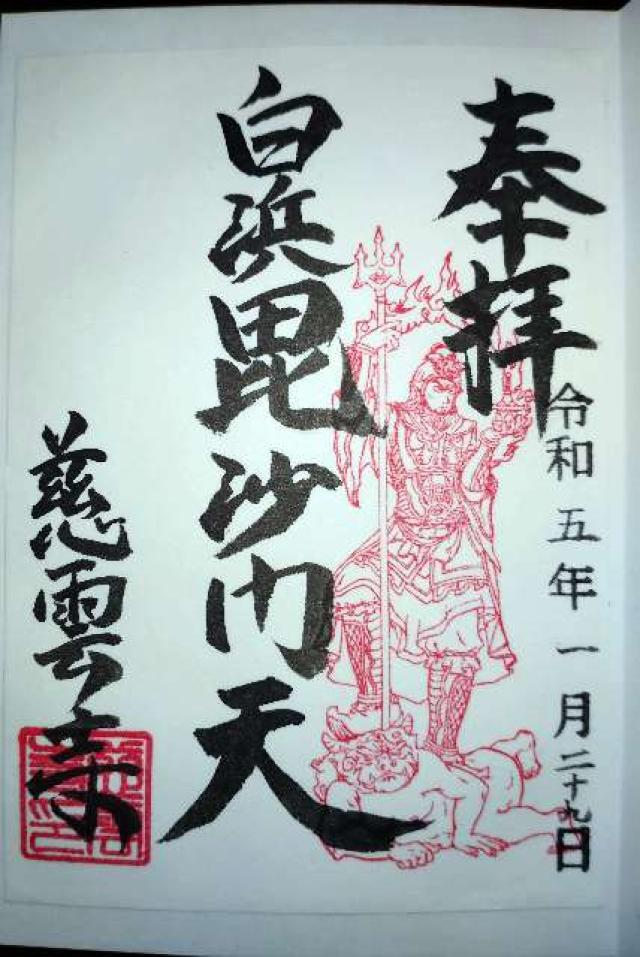 奉拝
令和五年一月二十九日
白浜毘沙门天
慈雲寺